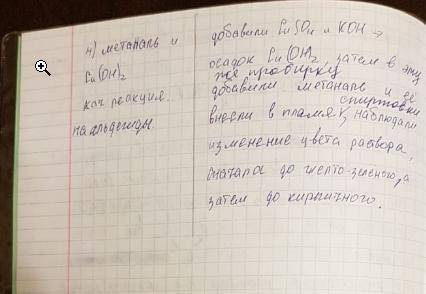 4) метаналь и
Cu(OH)₂
кач реакция
на альдегиды.
добавили CuSO₄ и KOH →
осадок Cu(OH)₂ затем в эту
же пробирку
добавили метаналь и её
внесли в пламя спиртовки, наблюдали
изменение цвета раствора,
сначала до желто-зеленого, а
затем до кирпичного.